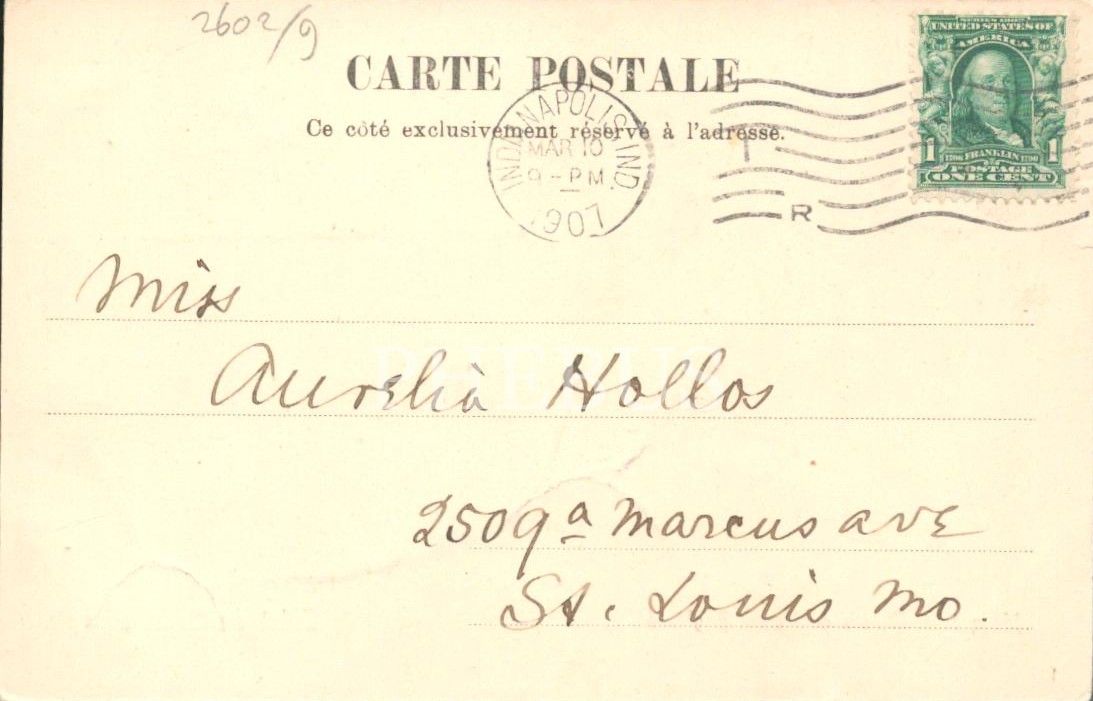 2602/9
CARTE POSTALE
Ce côté exclusivement réservé à l'adresse.
INDIANAPOLIS, IND.
MAR 10
9-PM
1907
R
SERIES 1902
UNITED STATES OF
AMERICA
1 1706 FRANKLIN 1790 1
POSTAGE
ONE CENT
Miss
Aurelia Hollos
2509a Marcus ave
St. Louis Mo.